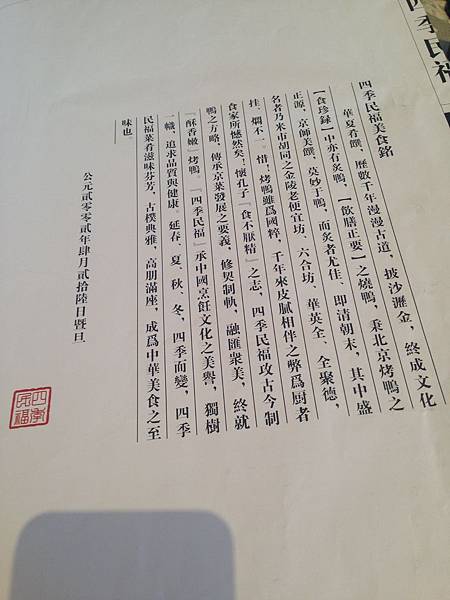 四季民福
四季民福美食銘
華夏肴饌，歷數千年漫漫古道，披沙瀝金，終成文化
【食珍録】中亦有炙鴨，【飲膳正要】之燒鴨，秉北京烤鴨之
正源，京師美饌，莫妙于鴨，而炙者尤佳，即清朝末，其中盛
名者乃米市胡同之金陵老便宜坊、六合坊、華英全、全聚德，
挂、燜不一。惜！烤鴨雖爲國粹，千年來皮膩相伴之弊爲厨者
食家所憾然矣！懷孔子『食不厭精』之志，四季民福攻古今制
鴨之方略，傳承京菜發展之要義，修契制軌，融匯衆美，終就
『酥香嫩』烤鴨。『四季民福』承中國烹飪文化之美譽，獨樹
一幟，追求品質與健康。延春、夏、秋、冬，四季而變，四季
民福菜肴滋味芬芳，古樸典雅，高朋滿座，成爲中華美食之至
味也。
公元貳零零貳年肆月貳拾陸日暨旦
四季民福